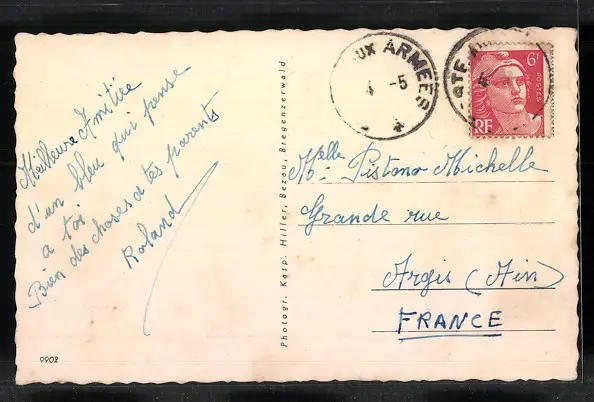 Meilleure Amitiée
d'un bleu qui pense
a toi
Bien des choses a tes parents
Roland
9902
Photogr. Kasp. Hiller, Bezau, Bregenzerwald
UX ARMEES
-5
STE A
6F
POSTES
RF
Melle Pistono Michelle
Grande rue
Argis (Ain)
FRANCE